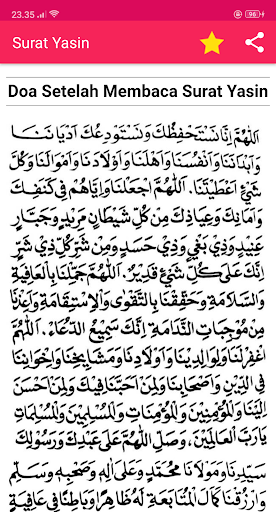 23.35
96
Surat Yasin
Doa Setelah Membaca Surat Yasin
اَللّٰهُمَّ اِنَّا نَسْتَحْفِظُكَ وَنَسْتَوْدِعُكَ اَدْيَانَنَا
وَاَبْدَانَنَا وَاَنْفُسَنَا وَاَهْلَنَا وَاَوْلَادَنَا وَاَمْوَالَنَا وَكُلَّ
شَيْءٍ اَعْطَيْتَنَا. اَللّٰهُمَّ اجْعَلْنَا وَاِيَّاهُمْ فِيْ كَنَفِكَ
وَاَمَانِكَ وَعِيَاذِكَ مِنْ كُلِّ شَيْطَانٍ مَرِيْدٍ وَجَبَّارٍ
عَنِيْدٍ وَذِيْ بَغْيٍ وَذِيْ حَسَدٍ وَمِنْ شَرِّ كُلِّ ذِيْ شَرٍّ
اِنَّكَ عَلَى كُلِّ شَيْءٍ قَدِيْرٌ. اَللّٰهُمَّ جَمِّلْنَا بِالْعَافِيَةِ
وَالسَّلَامَةِ وَحَقِّقْنَا بِالتَّقْوَى وَالْاِسْتِقَامَةِ وَاَعِذْنَا
مِنْ مُوْجِبَاتِ النَّدَامَةِ اِنَّكَ سَمِيْعُ الدُّعَاءِ. اَللّٰهُمَّ
اغْفِرْ لَنَا وَلِوَالِدِيْنَا وَاَوْلَادِنَا وَمَشَايِخِنَا وَاِخْوَانِنَا
فِي الدِّيْنِ وَاَصْحَابِنَا وَلِمَنْ اَحَبَّنَا فِيْكَ وَلِمَنْ اَحْسَنَ
اِلَيْنَا وَلِلْمُؤْمِنِيْنَ وَالْمُؤْمِنَاتِ وَالْمُسْلِمِيْنَ وَالْمُسْلِمَاتِ
يَا رَبَّ الْعَالَمِيْنَ، وَصَلِّ اللّٰهُمَّ عَلَى عَبْدِكَ وَرَسُوْلِكَ
سَيِّدِنَا وَمَوْلَانَا مُحَمَّدٍ وَعَلَى اٰلِهِ وَصَحْبِهِ وَسَلِّمْ
وَارْزُقْنَا كَمَالَ الْمُتَابَعَةِ لَهُ ظَاهِرًا وَبَاطِنًا فِيْ عَافِيَةٍ